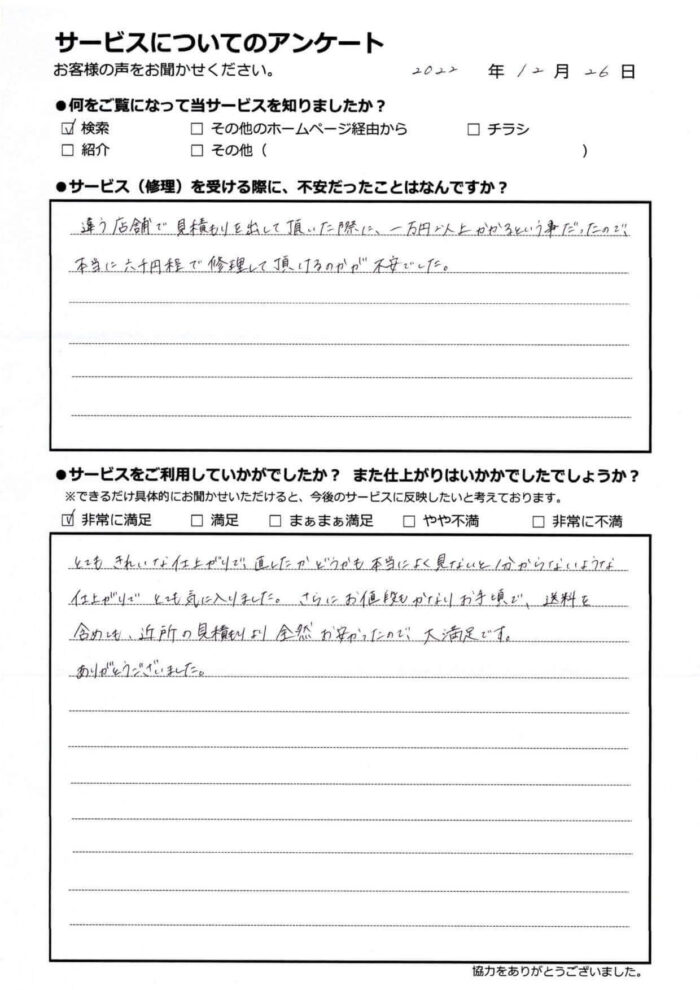 サービスについてのアンケート
お客様の声をお聞かせください。 2022 年 12 月 26 日
●何をご覧になって当サービスを知りましたか？
☑ 検索 □ その他のホームページ経由から □ チラシ
□ 紹介 □ その他（ ）
●サービス（修理）を受ける際に、不安だったことはなんですか？
違う店舗で見積もりを出して頂いた際に、一万円以上かかるという事だったので、
本当に六千円程で修理して頂けるのかが不安でした。
●サービスをご利用していかがでしたか？ また仕上がりはいかかでしたでしょうか？
※できるだけ具体的にお聞かせいただけると、今後のサービスに反映したいと考えております。
☑ 非常に満足 □ 満足 □ まぁまぁ満足 □ やや不満 □ 非常に不満
とても きれいな仕上がりで、直したかどうかも本当によく見ないと分からないような
仕上がりで とても気に入りました。さらにお値段もかなりお手頃で、送料を
含めても、近所の見積もりより全然お安かったので、大満足です。
ありがとうございました。
協力をありがとうございました。